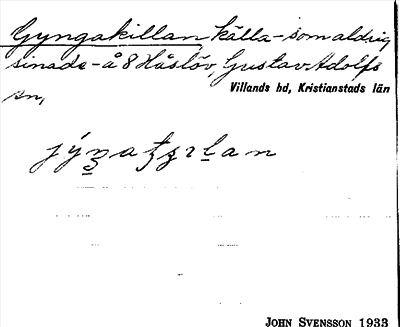 Gyngakillan, källa - som aldrig
sinade - å 8 Håslöv, Gustav Adolfs
Villands hd, Kristianstads län
sn,
JOHN SVENSSON 1933